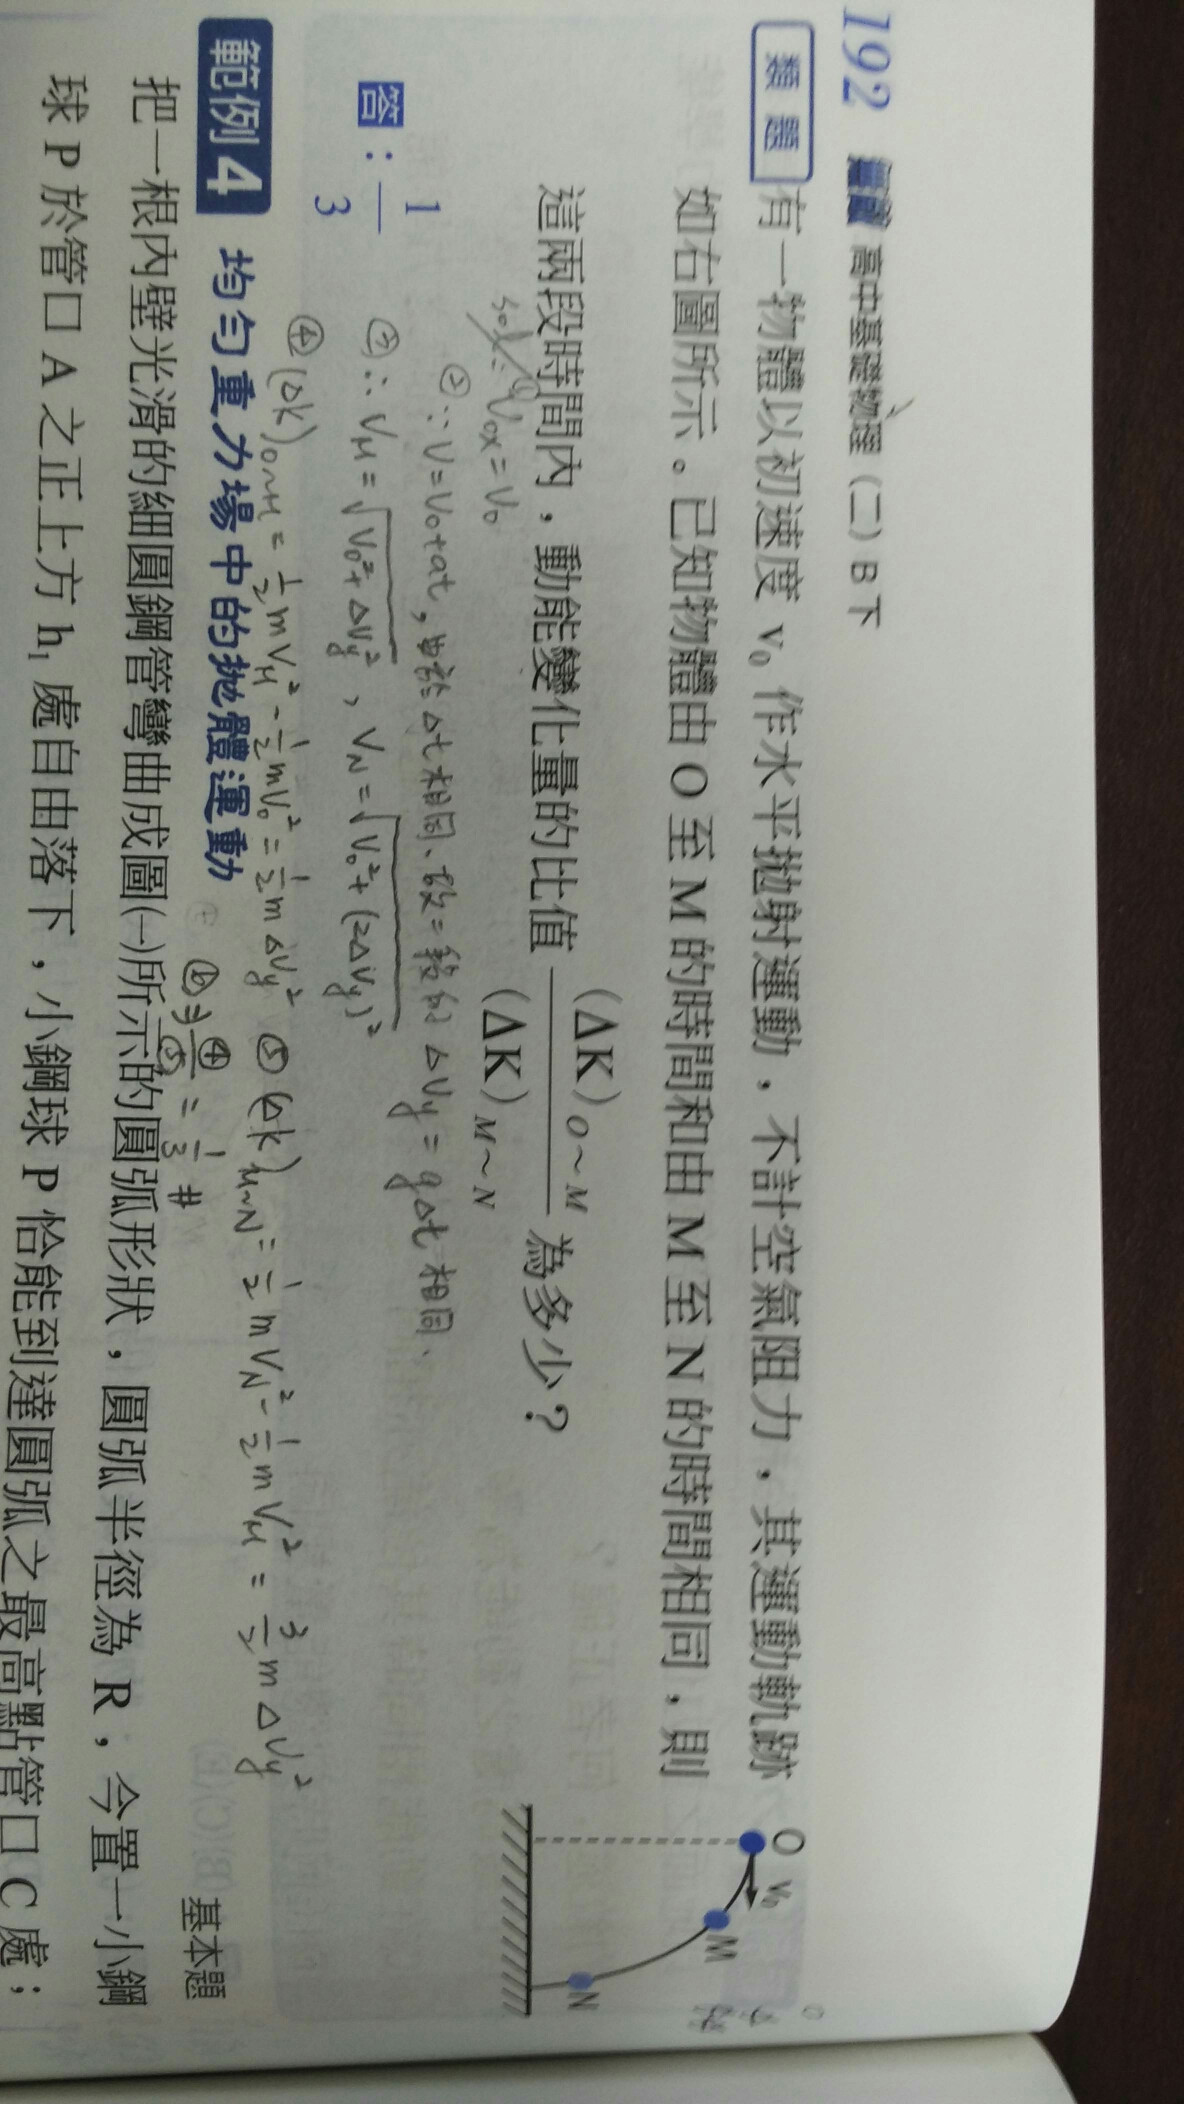 192 高中基礎物理(二)B下
類題 有一物體以初速度 v₀ 作水平拋射運動,不計空氣阻力,其運動軌跡
如右圖所示。已知物體由 O 至 M 的時間和由 M 至 N 的時間相同,則
這兩段時間內,動能變化量的比值 (ΔK)O~M / (ΔK)M~N 為多少?
O v₀
M
N
sol: ① V₀x = V₀
② ∵ V=V₀+at, 由於 Δt 相同、故二段的 ΔVy = gΔt 相同、
答:1/3
③ ∴ VM = √(V₀²+ΔVy²) 、 VN = √(V₀²+(2ΔVy)²)
④ (Δk)O~M = ½mVM² - ½mV₀² = ½mΔVy² ⑤ (Δk)M~N = ½mVN² - ½mVM² = 3/2 mΔVy²
⑥ ∴ ④/⑤ = 1/3 #
範例4 均勻重力場中的拋體運動 基本題
把一根內壁光滑的細圓鋼管彎曲成圖(一)所示的圓弧形狀,圓弧半徑為 R,今置一小鋼
球 P 於管口 A 之正上方 h₁ 處自由落下,小鋼球 P 恰能到達圓弧之最高點管口 C 處;